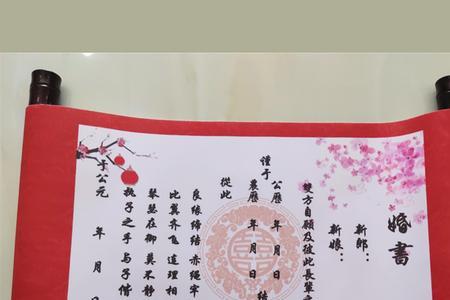 婚書
新郎：
新娘：
雙方自願及彼此長輩
謹于
公曆 年 月 日
農曆 年 月 日 結
從此
良缘缔结 赤绳牢
比翼齐飞 道理相
琴瑟在御 莫不静
执子之手 与子偕
于公元 年 月